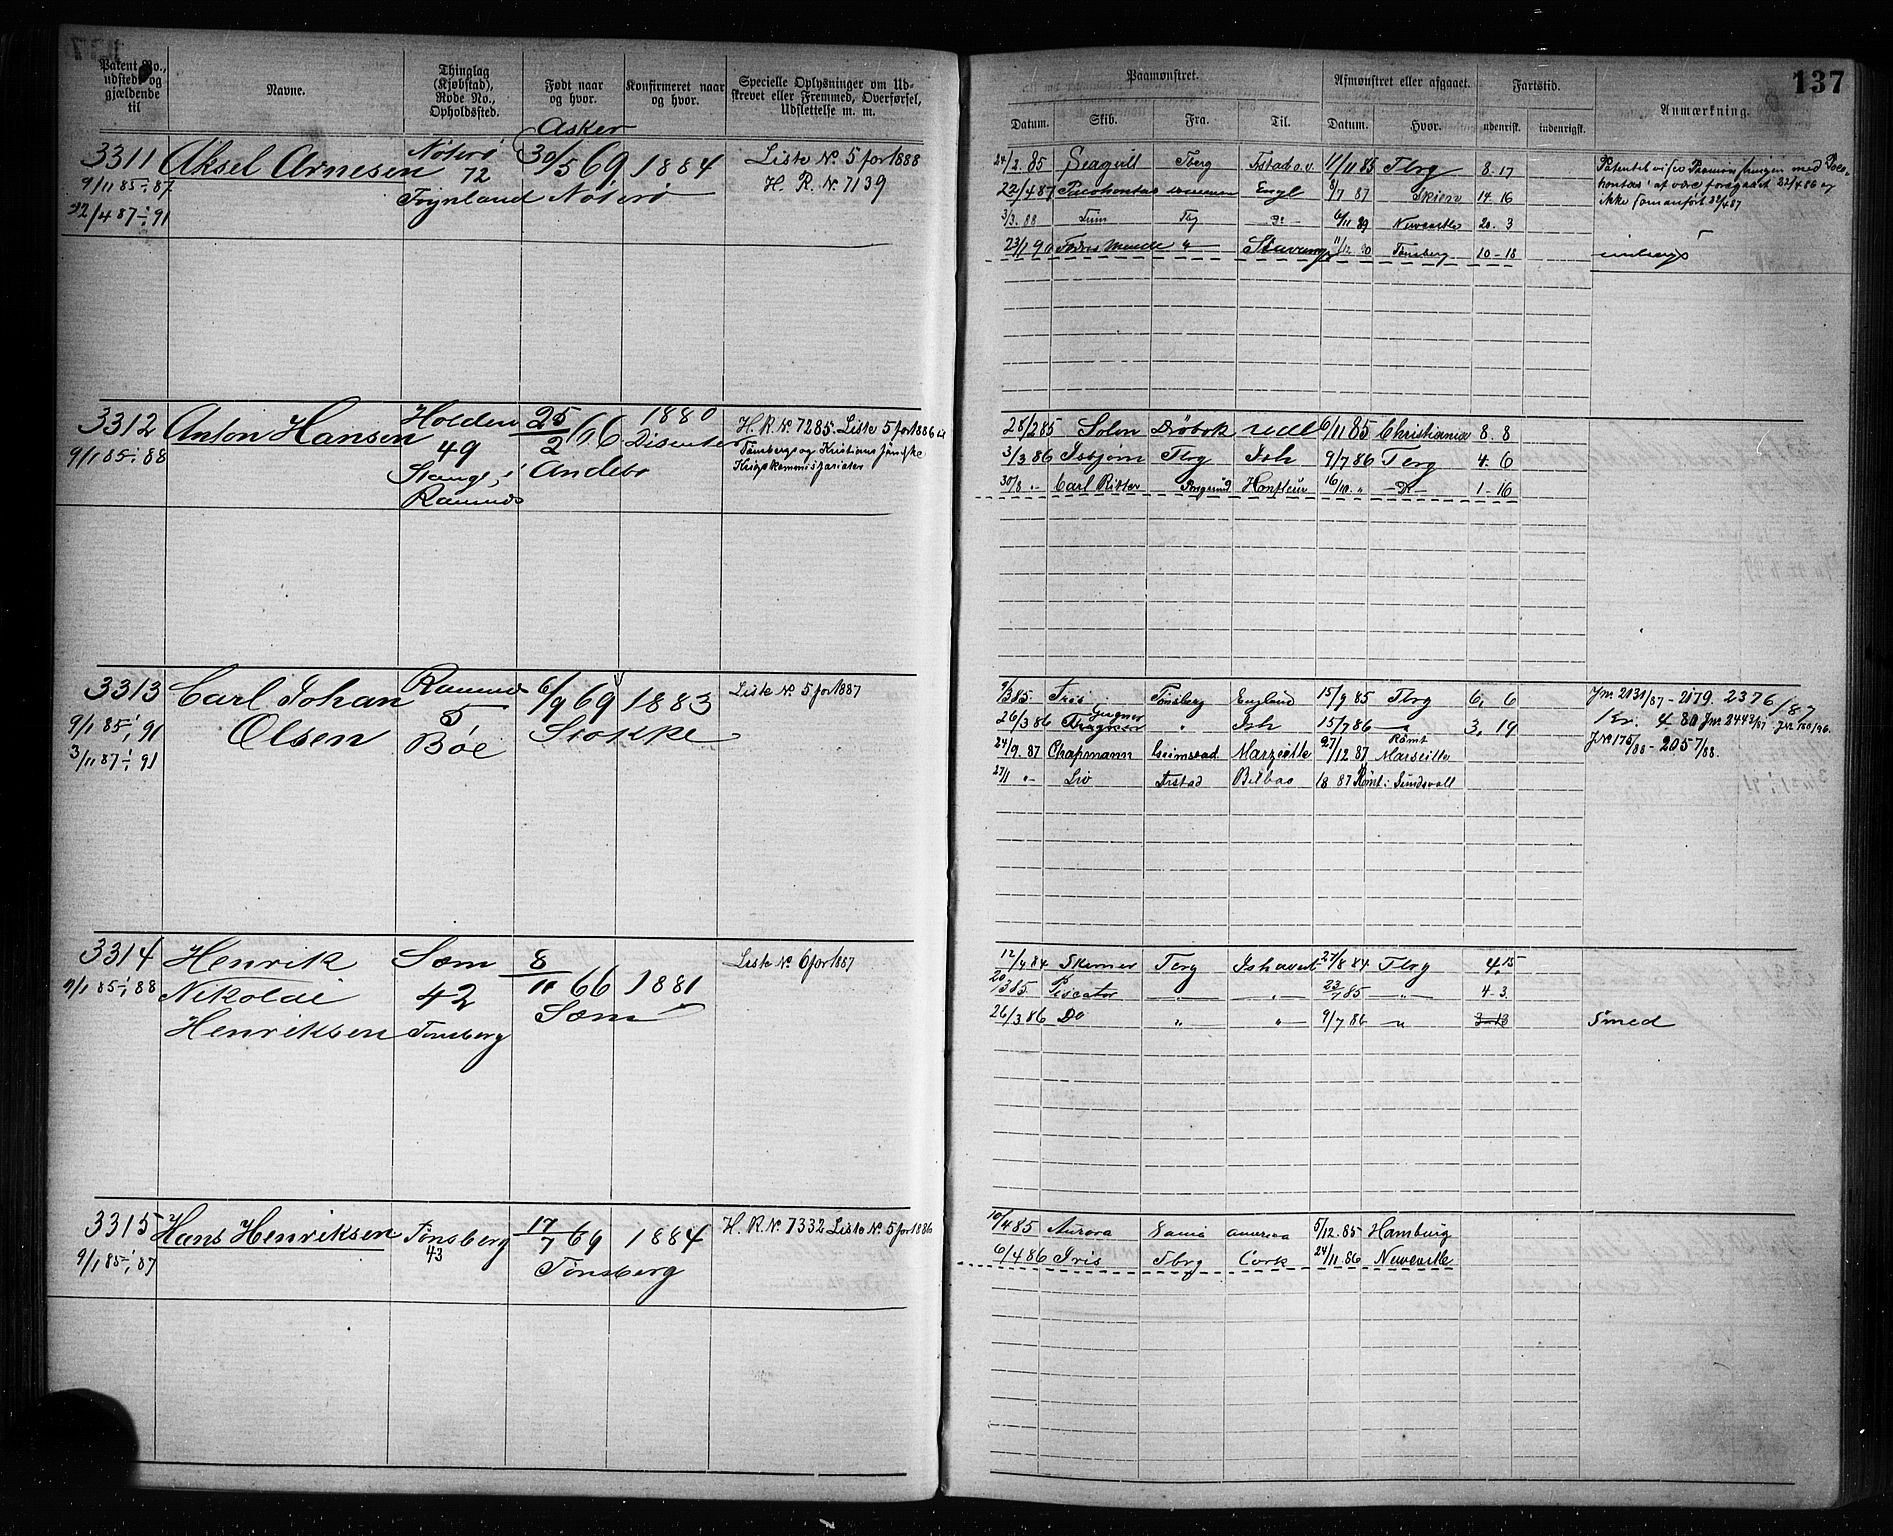 137
Patent No., udstedt og gjældende til
Navne.
Thinglag (Kjøbstad), Rode No., Opholdssted.
Født naar og hvor.
Konfirmeret naar og hvor.
Specielle Oplysninger om Udskrevet eller Fremmed, Overførsel, Udslettelse m. m.
Paamønstret.
Afmønstret eller afgaaet.
Fartstid.
Anmærkning.
Datum. Skib. Fra. Til. Datum. Hvor. udenrigsk. indenrigsk.
3311 Aksel Arnesen Nøterø 72 Asker 30/5 69 1884 Liste No. 5 for 1888
9/11 85-1/1 87 Føynland Nøterø H. R. No. 7139
22/4 87-1/1 91
24/2. 85 Seagull Tberg Fstad o.v. 11/11 85 Tbrg 8. 17
22/4 87 Pocohontas Engl /7 87 Skien 14. 16
3/3. 88 6/11 89 20. 3
23/1 90 11/12 90 Tønsberg 10-18
3312 Anton Hansen Holden 49 25/2 66 1880 H. R. No. 7285. Liste 5 for 1886
9/1 85-1/1 88 Stange, i Ramnes Andebo Disenter Tønsbergs og Kristians
Krigskommissariater
28/2 85 Solon Drøbak 6/11 85 Christiania 8. 8
3/3 86 Isbjørn Tbrg Ish 9/7 86 Tbrg 4. 6
30/8 " Carl Ritter Honfleur 16/10. " Do 1-16
3313 Carl Johan Olsen Ramnes 5 Bøe 6/9 69 1883 Stokke Liste No. 5 for 1887
9/1 85-1/1 91
3/11 87-1/1 91
/3 85 Tønsberg England 15/9 85 Tbrg 6. 6
26/3 86 " Ish 15/7 86 " 3. 19
24/9. 87 Chapmann Marseille 27/12 87 Rømt Marseille
27/1 " Liv Fstad Bilbao 18 87 Rømt i Sundsvall
Jnr. 2131/87 - 2179. 2376/87
Kr. 4 80
2057/88.
3314 Henrik Nikolai Henriksen Sæm 42 Tønsberg 8/11 66 1881 Sæm Liste No. 6 for 1887
9/1 85-1/1 88
12/4 84 Skirner Tbrg Ishavet 27/8 84 Tbrg 4,15
20/3 85 Piscator " " 23/7 85 " 4-3
26/3 86 Do " " 9/7 86 " 3-13 Smed
3315 Hans Henriksen Tønsberg 43 17/7 69 1884 Tønsberg H. R. No. 7332 Liste No. 5 for 1886
9/1 85-1/1 87
10/4 85 Aurora 5/12. 85 Hamburg
6/4 86 Iris Tbrg Cork 24/11. 86